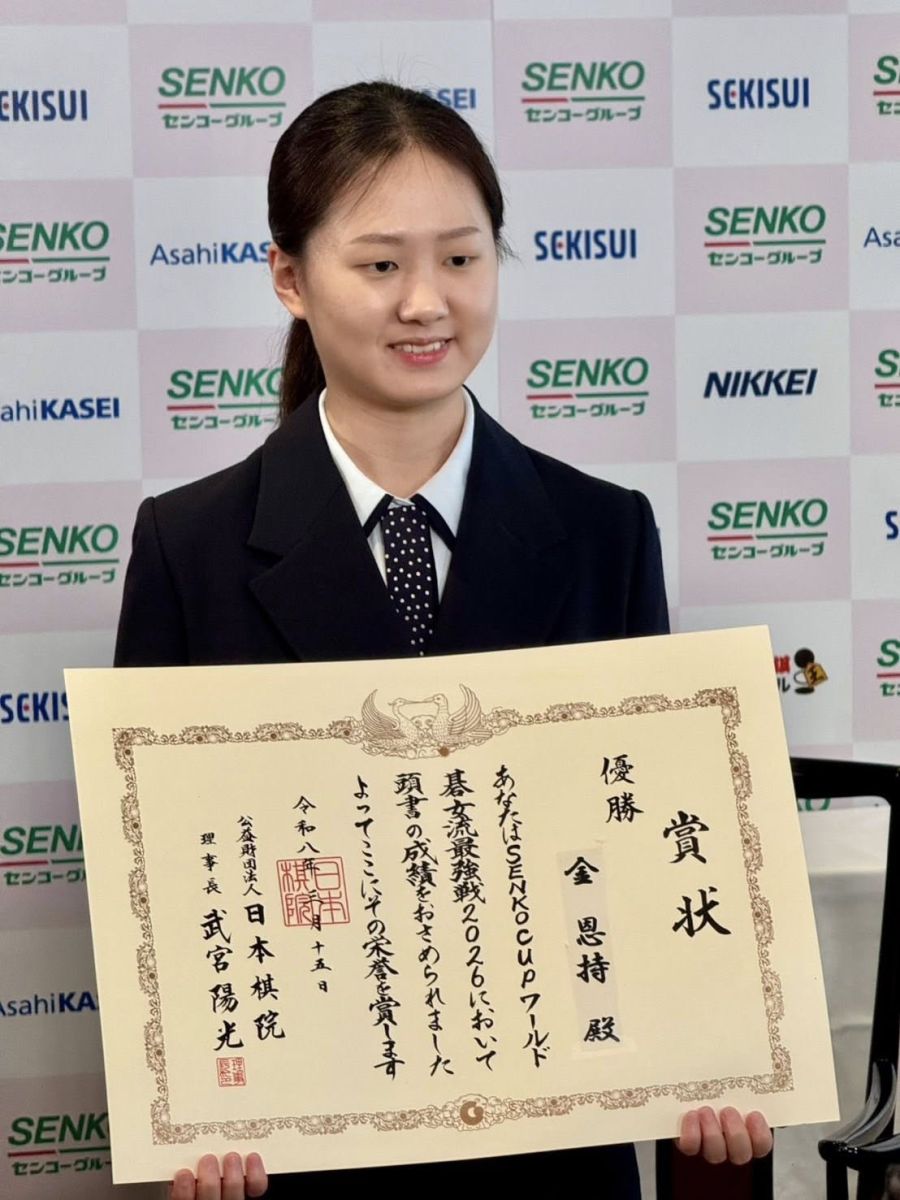 EKISUI
SENKO
センコーグループ
SENKO
センコーグループ
SEKISUI
SENKO
センコーグループ
AsahiKAS
SEKISUI
SENKO
センコーグループ
Asa
ahiKASEI
SENKO
センコーグループ
SENKO
センコーグループ
NIKKEI
SENKO
センコーグループ
SENKO
センコーグループ
SEKIS
SENK
センコーグルー
賞状
優勝
金恩持 殿
あなたはSENKOCUPワールド
碁女流最強戦2026において
頭書の成績をおさめられました
よってここにその栄誉を賞します
令和八年三月十五日
公益財団法人 日本棋院
理事長 武宮陽光
日本棋院